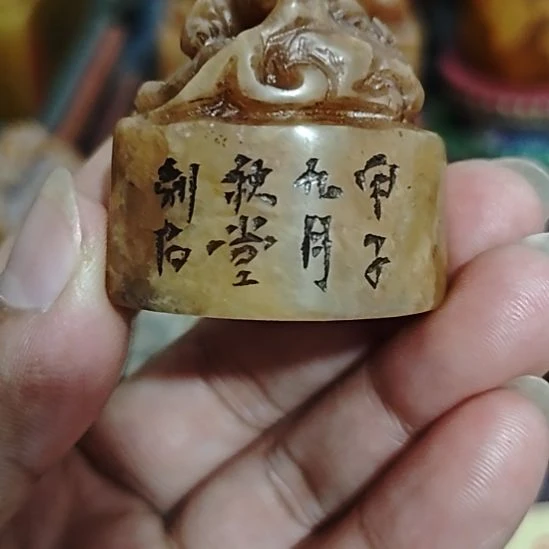 甲子
九月
秋堂
刻石